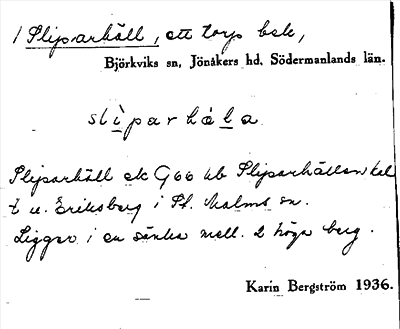 1 Sliparhäll, ett torp bek,
Björkviks sn, Jönåkers hd, Södermanlands län.
slìparhåla
Sliparhäll ek G66 kb Sliparhällan
t u. Eriksberg i St. Malms sn.
Ligger i en sänka mell. 2 höga berg.
Karin Bergström 1936.